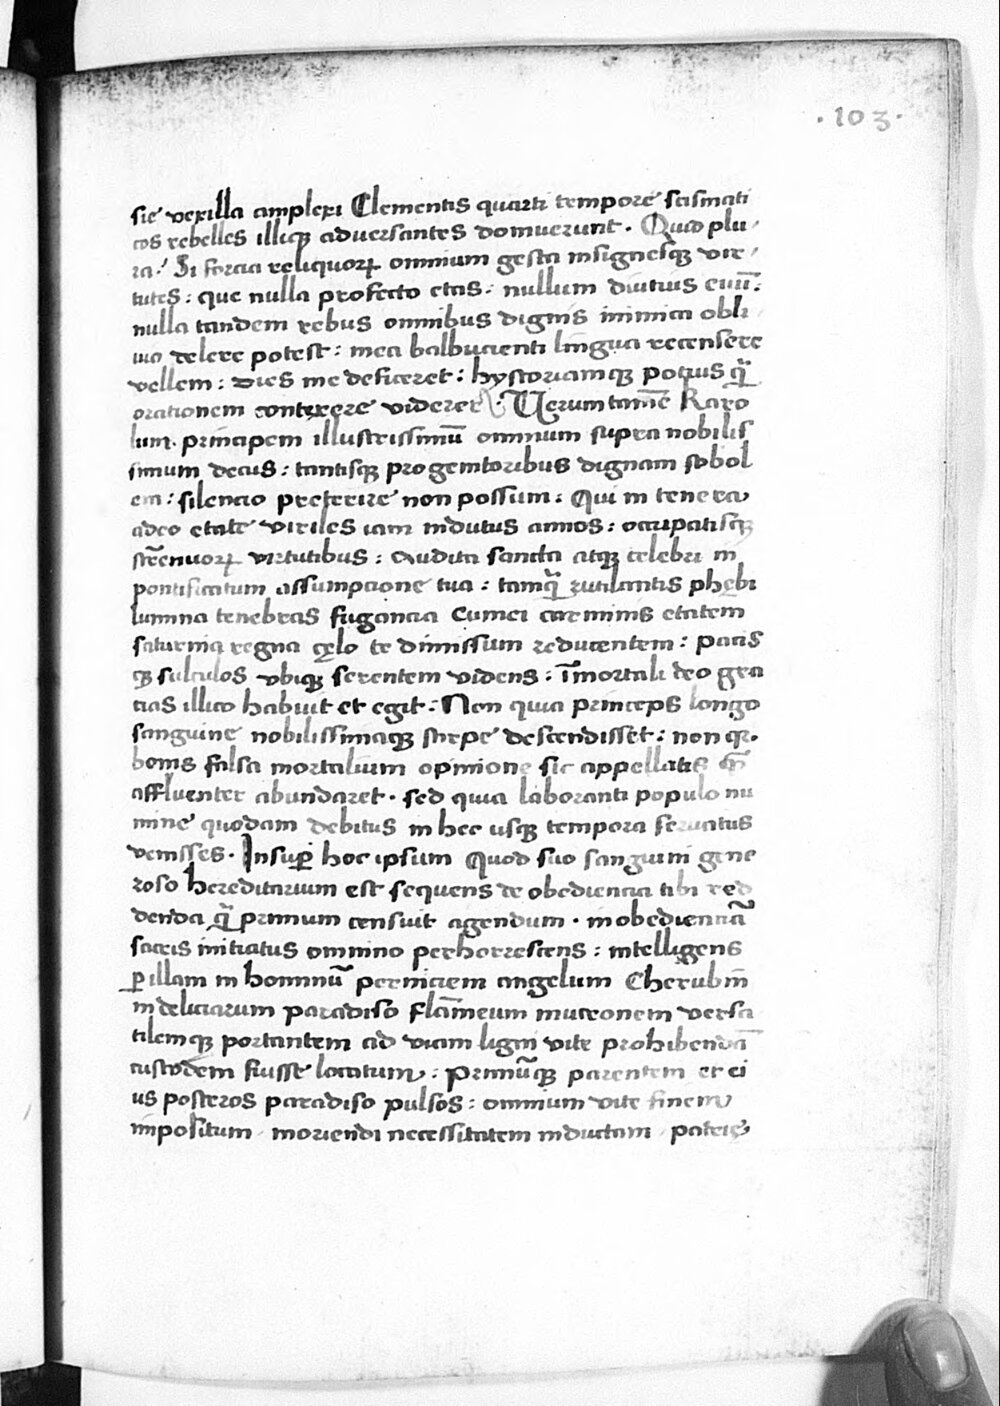 ·103·
sie vexilla amplexi Clementis quarti tempore scismati
cos rebelles illiq̃ adversantes domuerunt. Quid plu
ra? Si forcia reliquorꝝ omnium gesta insignesqꝫ vir
tutes: que nulla profecto etas: nullum divtius evū:
nulla tandem rebus omnibus dignis inimica obli
uio delere potest: mea balbucienti lingua recensere
vellem: dies me deficeret: hystoriamqꝫ potius q̃
orationem contexere viderer. Verumtamē Karo
lum principem illustrissimū omnium supra nobilis
simum decus: tantisqꝫ progenitoribus dignam sobol
em: silencio preterire non possum: Qui in tenera
adeo etate viriles iam indutus annos: occupatisqꝫ
strēnuorꝝ virtutibus: Audita sancta atqꝫ celebri in
pontificatum assumpcione tua: tamq̃ rutilantis phębi
lumina tenebras fugancia Cumei carminis etatem
saturnia regna cęlo te dimissum reducentem: pacis
qꝫ sulculos vbiqꝫ serentem videns: īmortali deo gra
cias illico habuit et egit: Non quia princeps longo
sanguine nobilissimaqꝫ stirpe descendisset: non qꝛ
bonis falsa mortalium opinione sic appellatis
affluenter abundaret. sed quia laboranti populo nu
mine quodam debitus in hec usqꝫ tempora servatus
venisses. Insuꝑ hoc ipsum Quod suo sanguini gene
roso hereditarium est sequens de obediencia tibi red
denda q̃ primum censuit agendum. inobedienciā
sacris initiatus omnino perhorrescens: intelligens
ꝑ illam in hominū perniciem angelum Cherubin̄
in deliciarum paradiso flāmeum mucronem versa
tilemqꝫ portantem ad viam ligni vite prohibendā
custodem fuisse locatum: Primūqꝫ parentem et ei
us posteros paradiso pulsos: omnium vite finem
impositum moriendi necessitatem inductam patrię